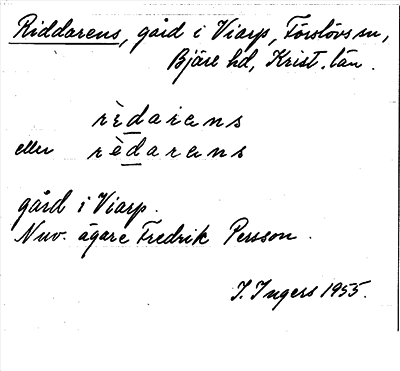 Riddarens, gård i Viarp, Förslövs sn,
Bjäre hd, Krist. län.
rèdarens
eller rèdarens
gård i Viarp.
Nuv. ägare Fredrik Persson.
I. Ingers 1955.